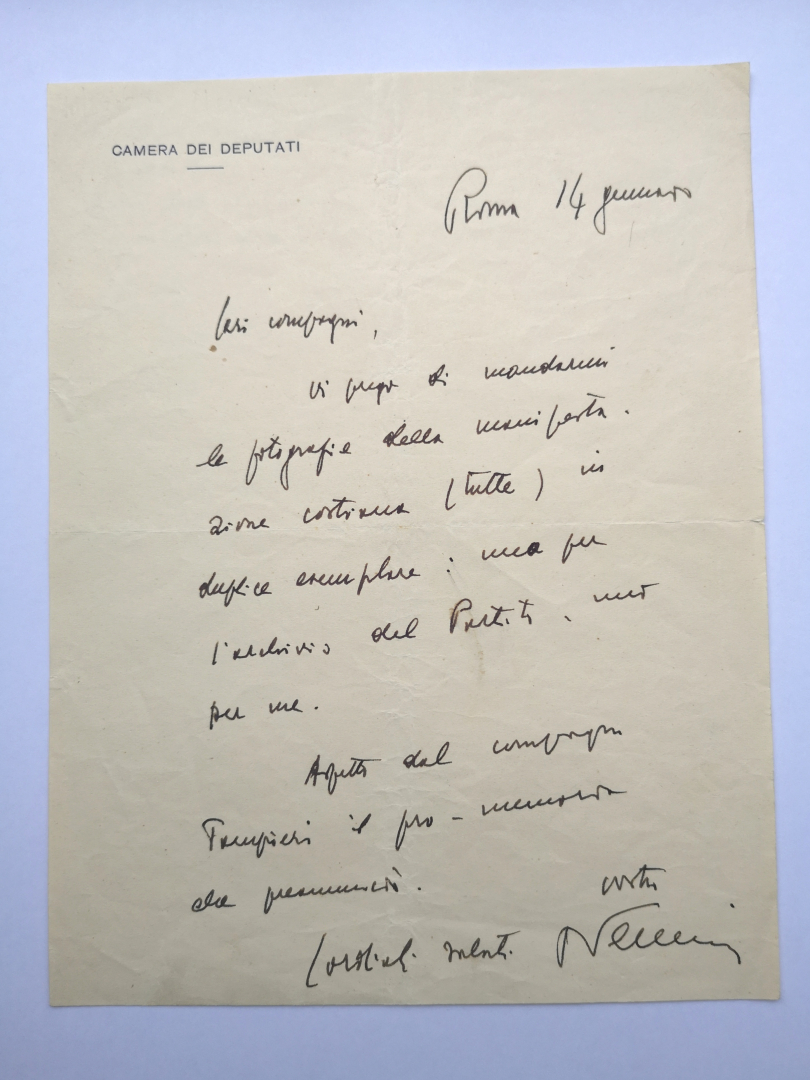 CAMERA DEI DEPUTATI
Roma 14 gennaio
Cari compagni,
vi prego di mandarmi
le fotografie della manifesta-
zione costiana (tutte) in
duplice esemplare: una per
l'archivio del Partito, una
per me.
Aspetto dal compagno
Tampieri il pro-memoria
che preannunciò.
vostro
Cordiali saluti. Nenni